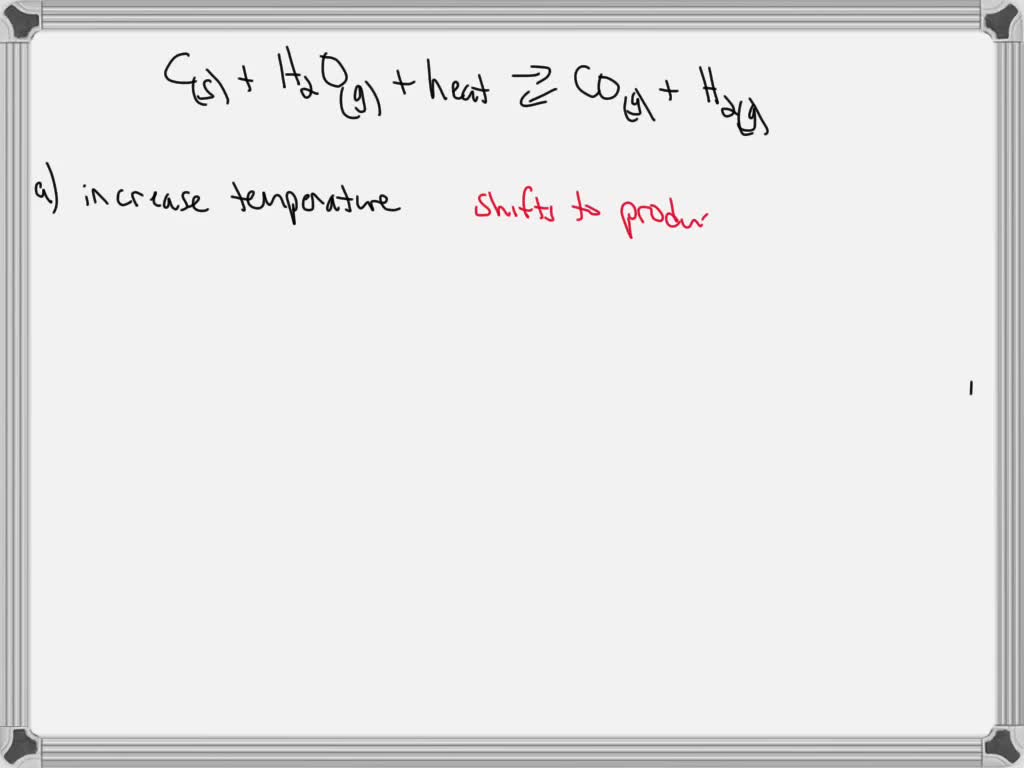 C(s) + H₂O(g) + heat ⇌ CO(g) + H₂(g)
a) increase temperature shifts to produc